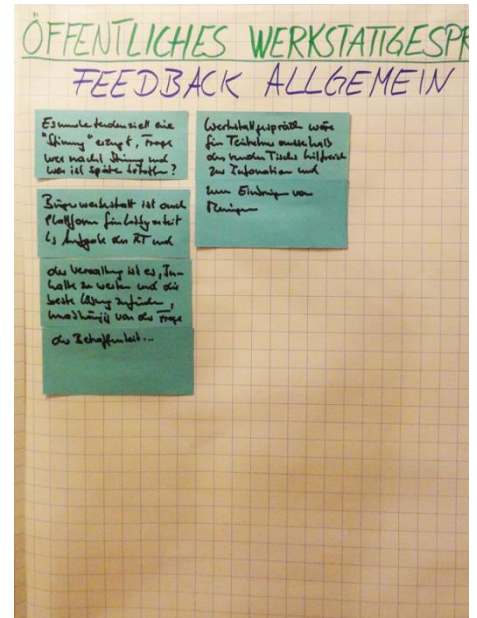 ÖFFENTLICHES WERKSTATTGESPR
FEEDBACK ALLGEMEIN
Es wurde tendenziell eine
"Stimmung" erzeugt, Frage
wer macht Stimmung und
wer ist später betroffen?
Bürgerwerkstatt ist auch
Plattform für Lobbyarbeit
↳ Aufgabe des RT und
der Verwaltung ist es, In-
halte zu werten und die
beste Lösung zu finden,
unabhängig von der Frage
der Betroffenheit...
Werkstattgespräch wäre
für Teilnehmer ausserhalb
des runden Tisches hilfreich
zur Information und
zum Einbringen von
Meinungen